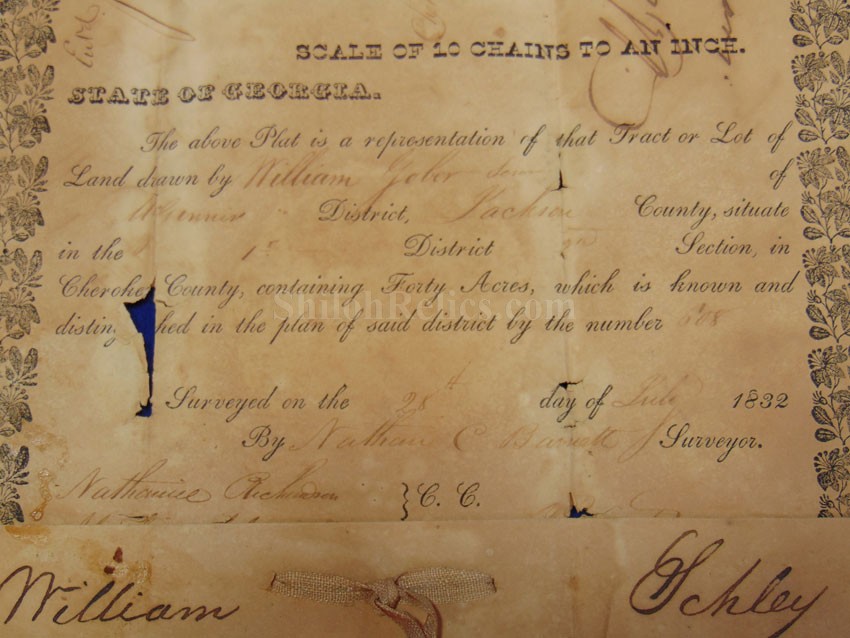 SCALE OF 10 CHAINS TO AN INCH.
STATE OF GEORGIA.
The above Plat is a representation of that Tract or Lot of
Land drawn by William Gober of
District, Jackson County, situate
in the 1st District 2nd Section, in
Cheroke County, containing Forty Acres, which is known and
ShilohRelics.com
disting hed in the plan of said district by the number
Surveyed on the 28th day of July 1832
By Nathan C Barnett Surveyor.
C. C.
William Schley